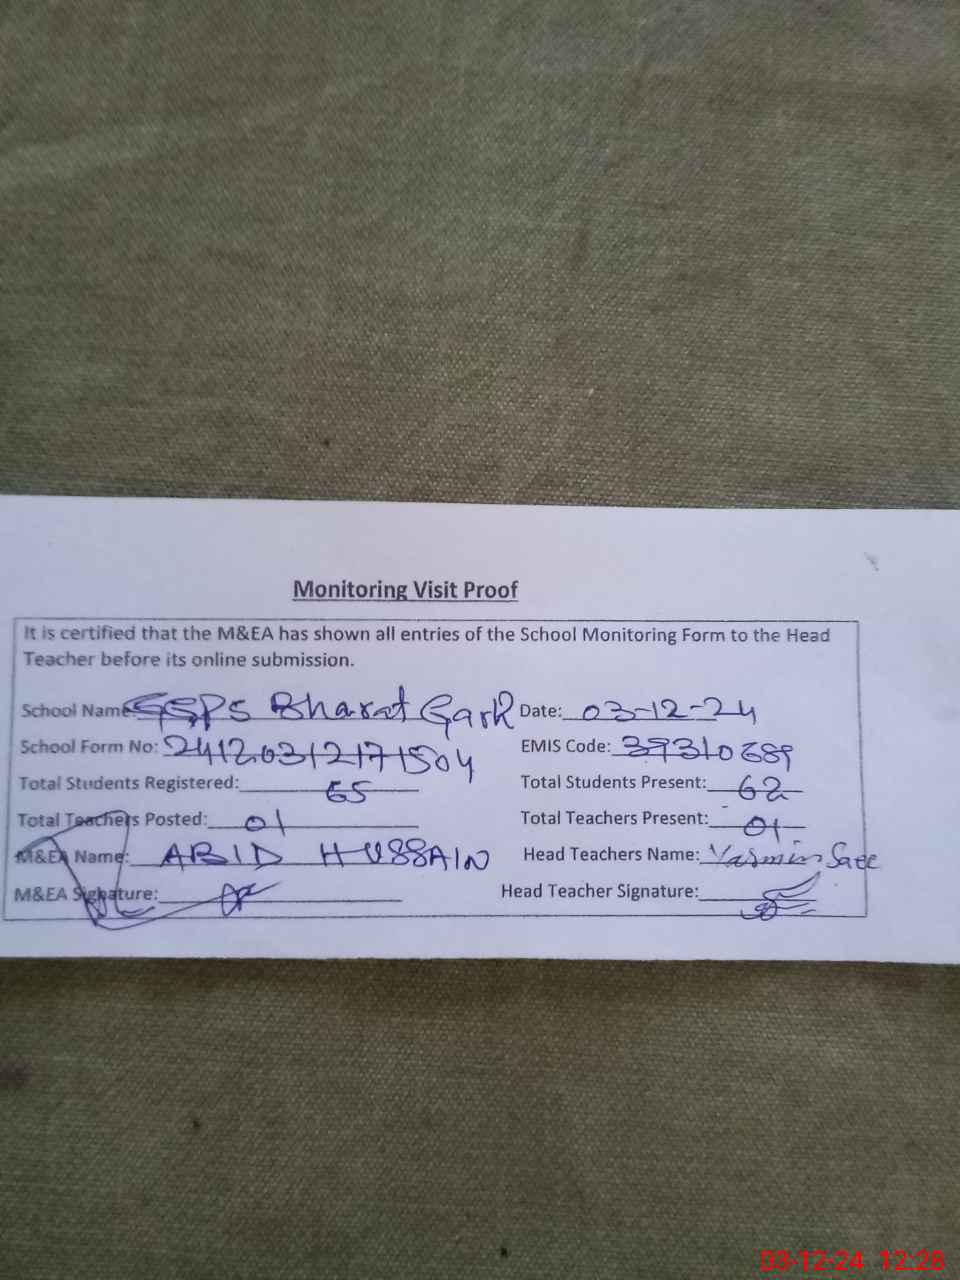 Monitoring Visit Proof
It is certified that the M&EA has shown all entries of the School Monitoring Form to the Head
Teacher before its online submission.
School Name: GGPS Bharat Garh Date: 03-12-24
School Form No: 24120312171504 EMIS Code: 39310689
Total Students Registered: 65 Total Students Present: 62
Total Teachers Posted: 01 Total Teachers Present: 01
M&EA Name: ABID HUSSAIN Head Teachers Name: Yasmin
M&EA Signature: Head Teacher Signature:
03-12-24 12:28